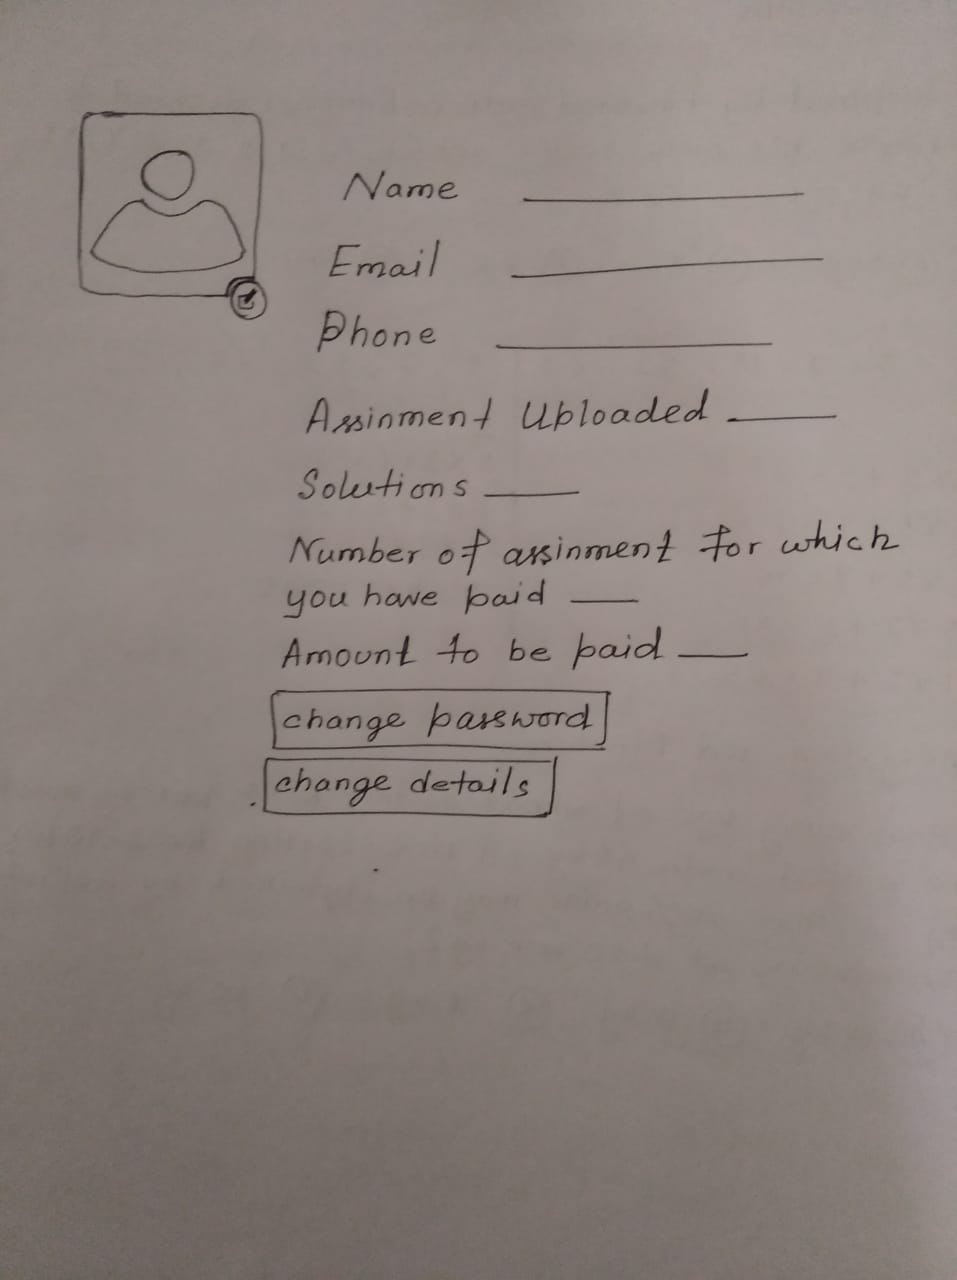 Name
Email
Phone
Assinment Uploaded
Solutions
Number of assinment for which
you have paid
Amount to be paid
change password
change details